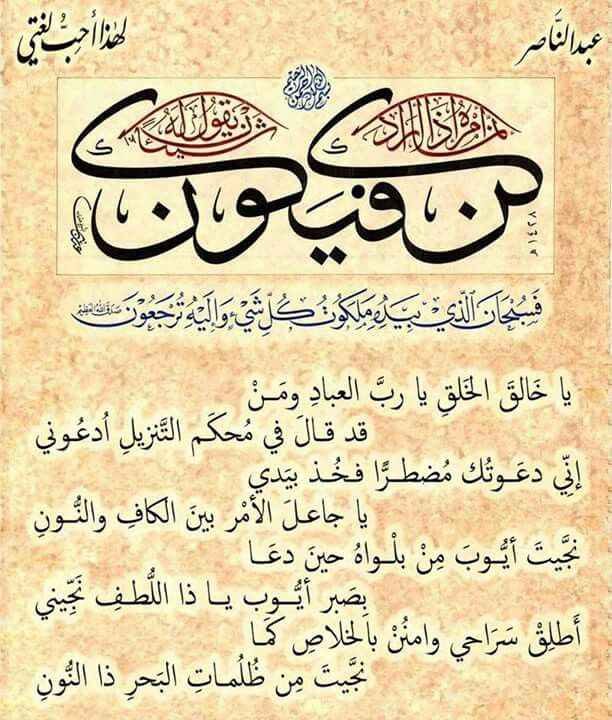 عبد النَّاصر
لهٰذا أحِبُّ لغتي
بسم الله الرحمن الرحيم
إنما أمره إذا أراد شيئاً أن يقول له
كن فيكون
١٤٢٨ هـ
فَسُبْحَانَ الَّذِي بِيَدِهِ مَلَكُوتُ كُلِّ شَيْءٍ وَإِلَيْهِ تُرْجَعُوْنَ صَدَقَ اللهُ العَظِيْم
يا خَالقَ الخَلقِ يا ربَّ العبادِ ومَـنْ
قد قـالَ في مُحكَم التَّنزيلِ اُدعُـوني
إنِّي دعَـوتُك مُضطـرًّا فخُـذ بيَدي
يا جاعـلَ الأمْر بينَ الكافِ والنُّـونِ
نجَّيتَ أيُّـوبَ مِنْ بلْـواهُ حينَ دعَـا
بِصَبر أيُّـوب يـا ذا اللُّطـفِ نَجِّيني
أَطلِقْ سَرَاحي وامنُنْ بالخلاصِ كَمَـا
نجَّيتَ مِن ظُلُمـاتِ البَحرِ ذا النُّونِ